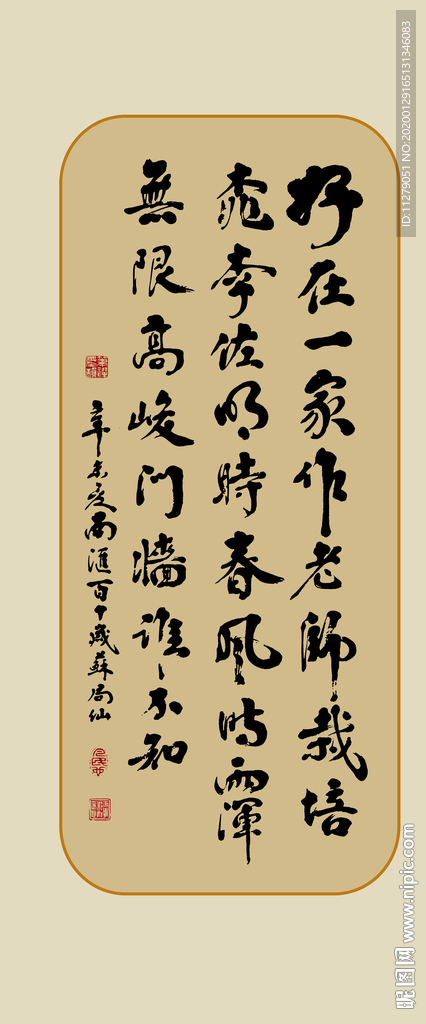 好在一家作老師栽培
桃李佐明時春風時雨渾
無限高峻門牆誰不知
辛未夏南滙百十歲蘇局仙
ID:11279051 NO:20200129165131346083
昵图网 www.nipic.com